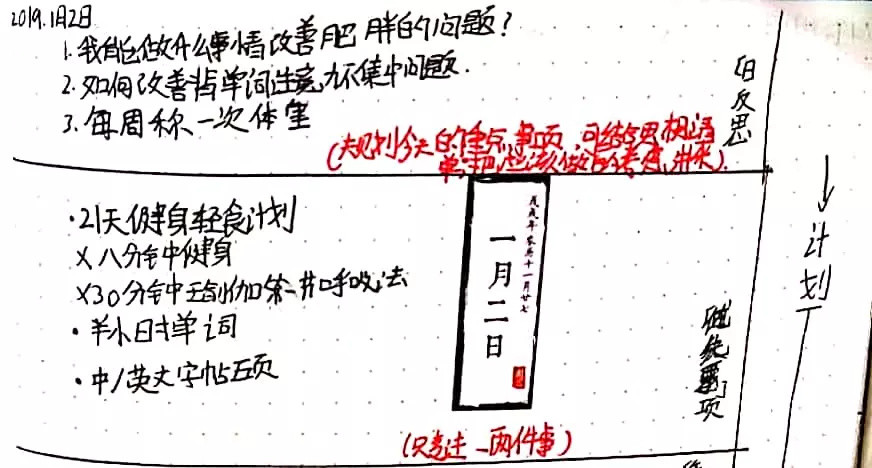 2019.1月2日
1. 我能做什么事情改善肥胖的问题?
2. 如何改善背单词注意力不集中问题.
3. 每周称一次体重
日反思
(规划今天的重点事项,可结合思
·21天健身轻食计划
×八分钟健身
×30分钟
·半小时单词
·中/英文字帖五页
戊戌年农历十一月廿七
一月二日
(只专注一两件事)
↓计划
事项